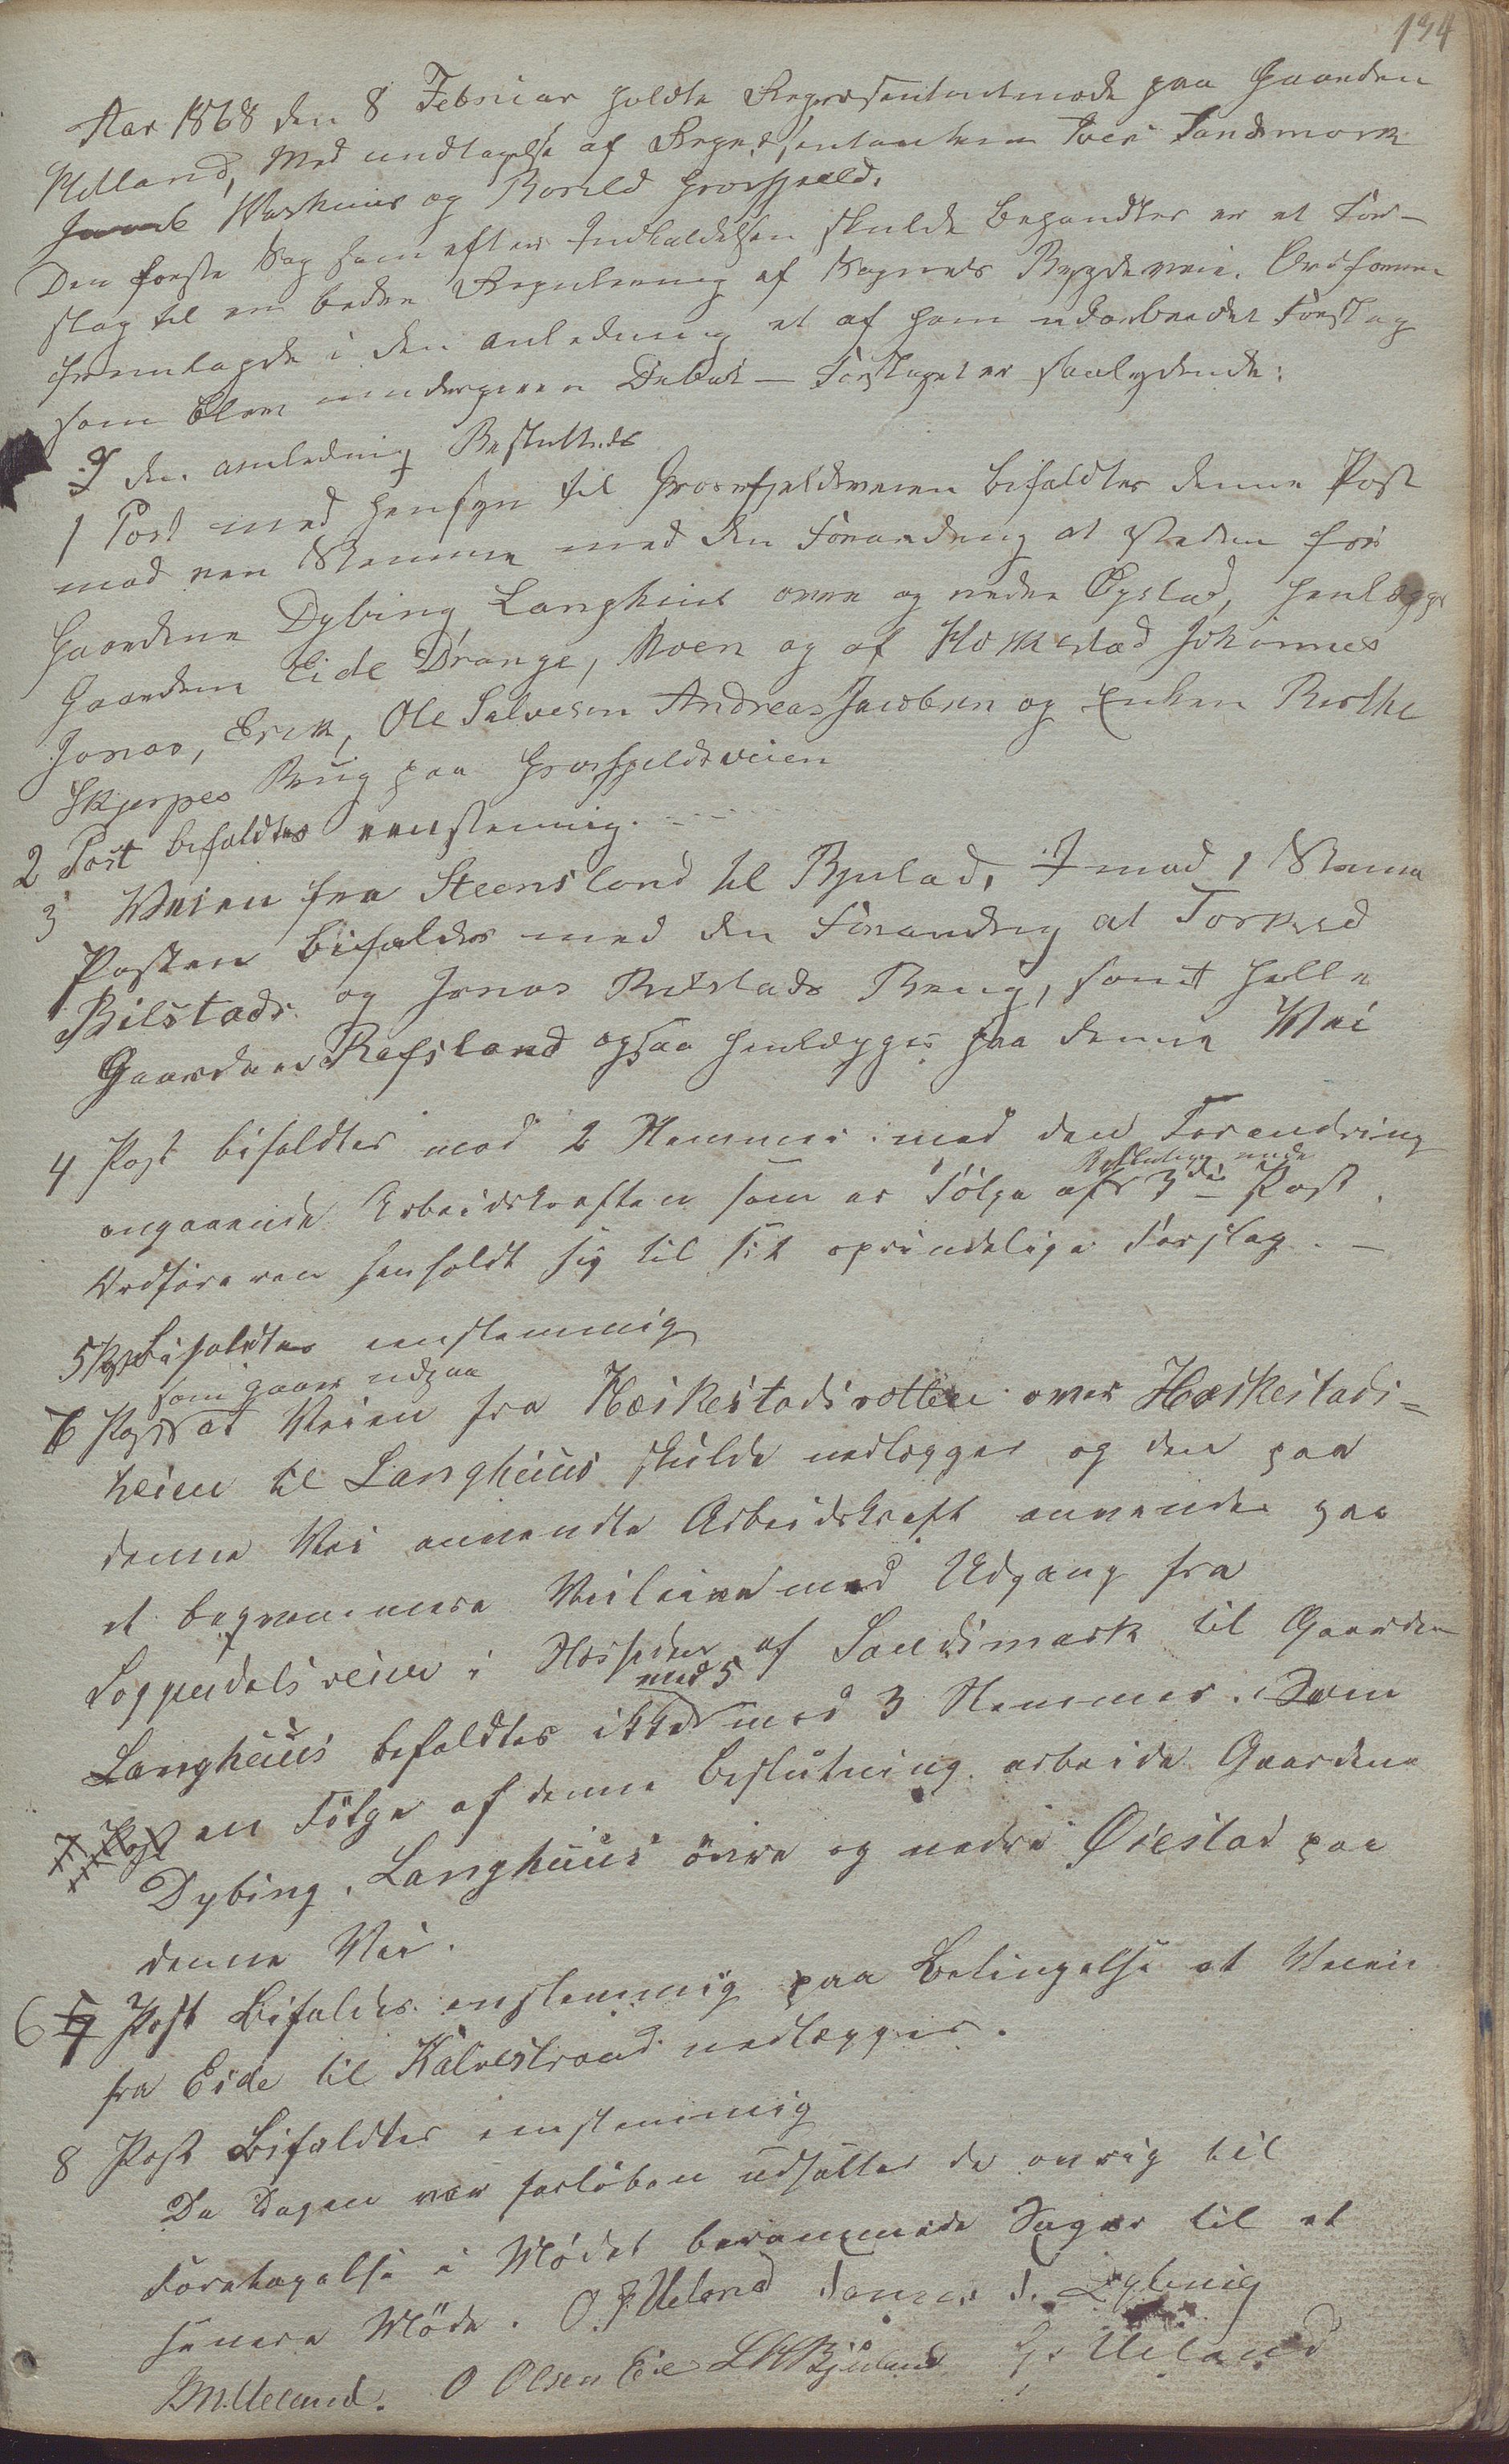 134
Aar 1868 den 8 Februar holdte Repræsentantmøde paa Gaarden
Helland, Med undtagelse af Repræsentanterne Iver Sandsmark
Jacob og Borild Grosfjeld.
Den første Sag som efter Indkaldelsen skulde behandles er et For-
slag til en bedre Regulering af Sognets Bygdeveie. Ordføreren
fremlagde i den anledning et af ham udarbeidet Forslag
som blev undergiven Debat — Forslaget er saalydende:
I den anledning Besluttedes
1 Post med hensyn til Grosfjeldsveien bifaldtes denne Post
mod een Stemme med den Forandring at steden for
Gaardene Dybing Langhuus øvre og nedre Øgstad, henlægges
Gaardene Eide Drange, Moen og af Hæskestad Johannes
Jonas, Erik, Ole Salvesen Andreas Jacobsen og Enken Berthe
Skjerpes Brug paa Grosfjeldsveien
2 Post bifaldtes eenstemmig.
3 Veien fra Steensland til Bjulad, I mod 1 Stemme
Posten bifaldes med den Forandring at Torkild
Bilstads og Jonas Bilstads Brug, samt hele
Gaarden Refsland ogsaa henlægges paa denne Vei
4 Post bifaldtes mod 2 Stemmer med den Forandring
Beslutningen ved
angaaende Arbeidskraften som er Følge af 3die Post.
Ordføreren henholdt sig til sit oprindelige Forslag. —
5 Post Bifaldtes enstemmig
som gaar udpaa
6 Post at Veien fra Hæskestadsrotten over Hæskestads=
heien til Langhuus skulde nedlægges og den paa
denne Vei anvendte Arbeidskraft anvendes paa
et beqvemmere Veiliine med Udgang fra
Loppedalsveien i af Sandsmark til Gaarden
med 5
Langhuus bifaldtes ikke mod 3 Stemmer. Som
7 Post en Følge af denne Beslutning arbeide Gaardene
Dybing, Langhuus øvre og nedre Øiestad paa
denne Vei.
6 7 Post Bifaldes enstemmig paa Betingelse at Veien
fra Eide til Kalvestrand nedlægges.
8 Post Bifaldtes enstemmig
Da Dagen var forløben udsattes de øvrig til
Foretagelse i Mødet berammede Sager til et
senere Møde. O. J Ueland Jonas J. Dybing
B M Ueland. O Olsen Eie L H Bjuland G. Ueland